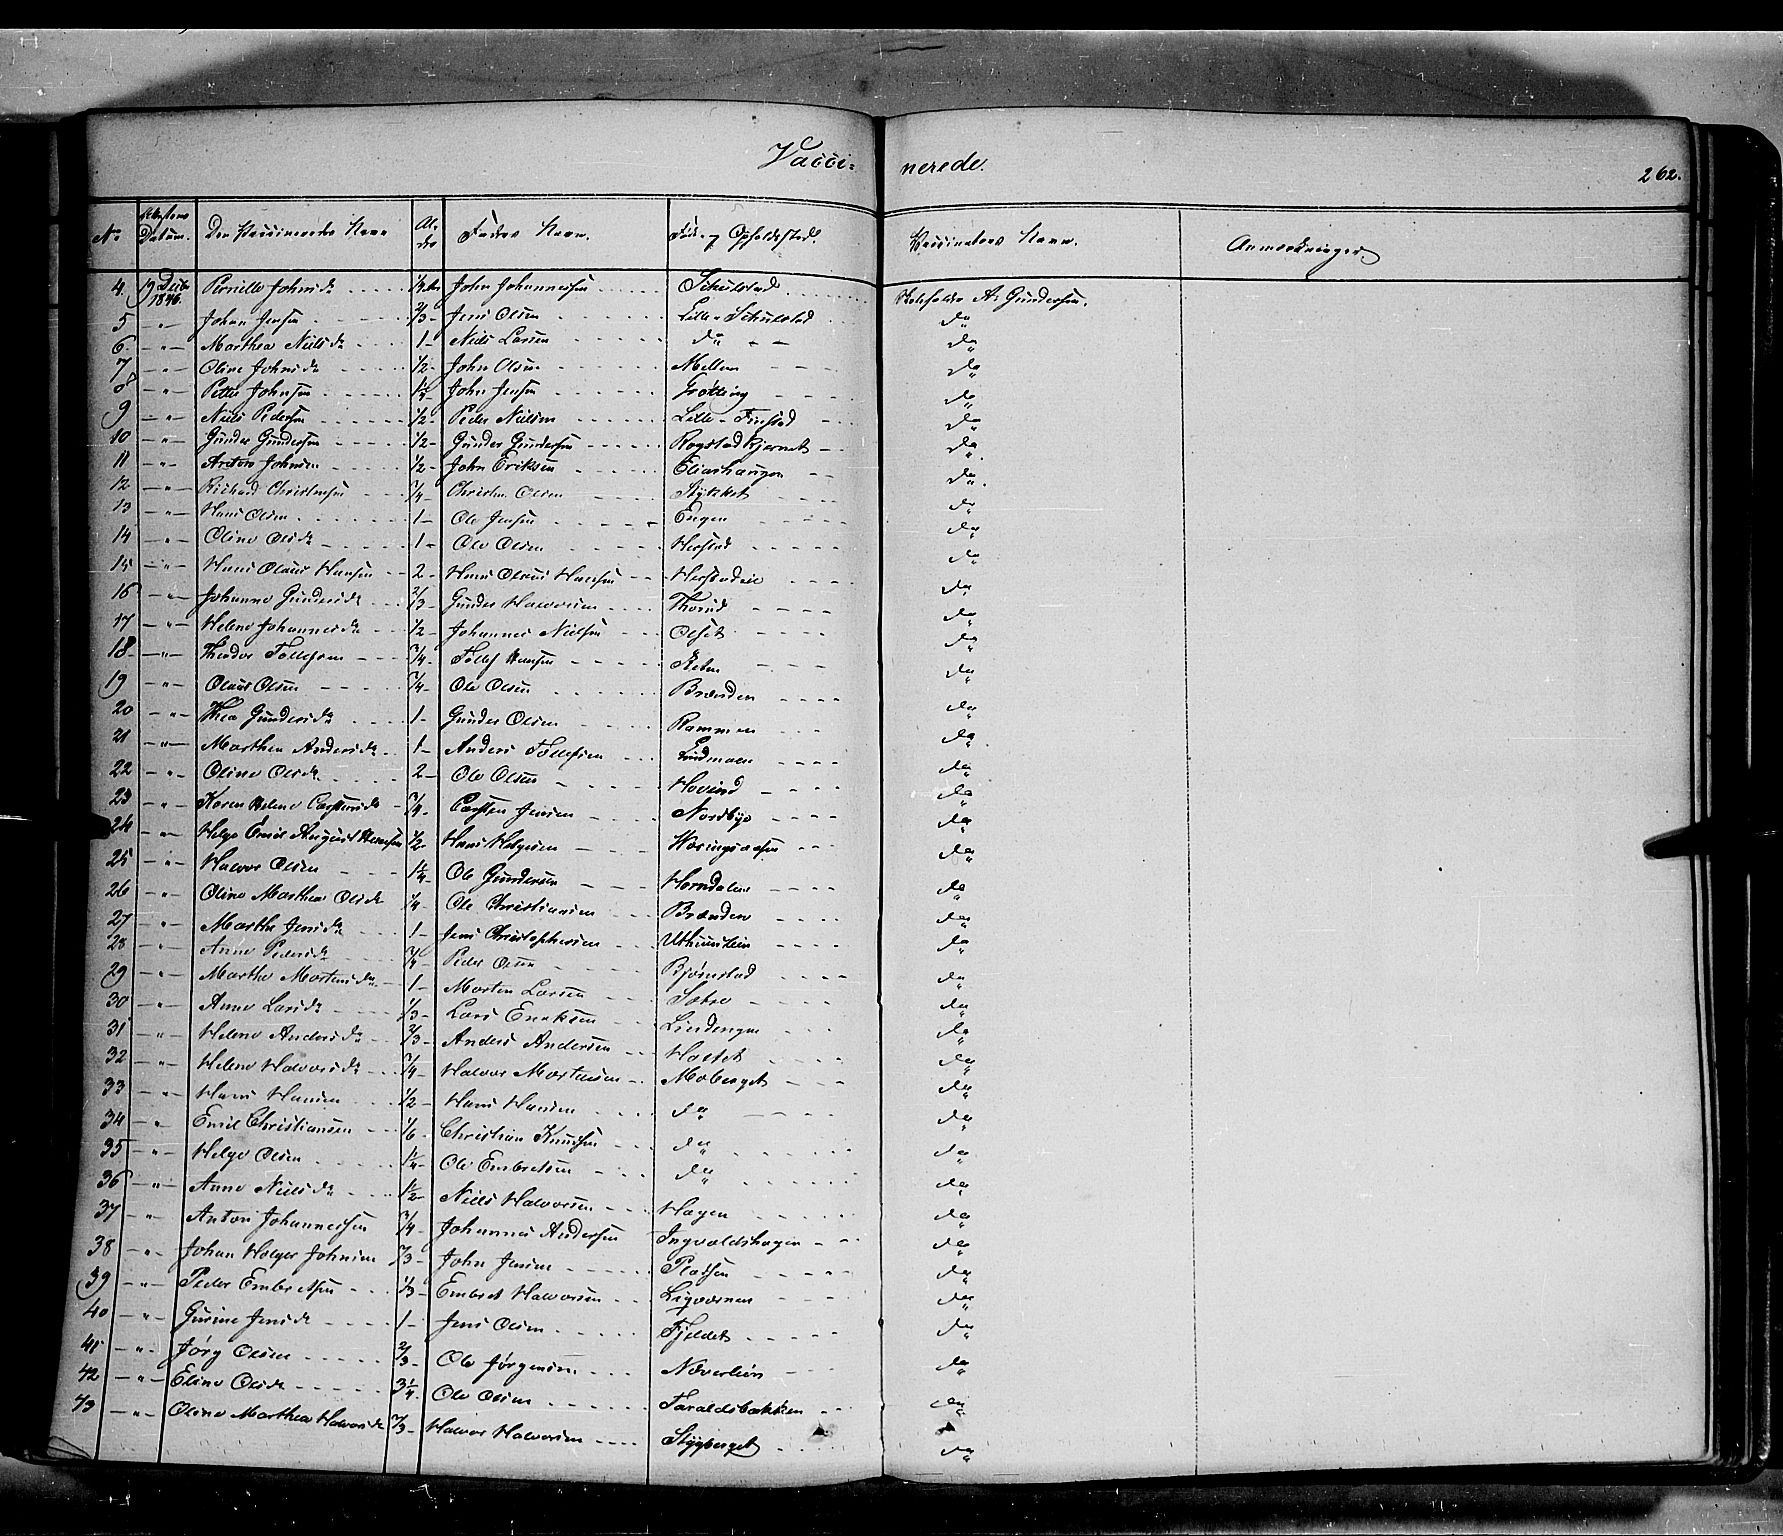 Vacci= nerede. 262.
No Attestens Datum. Den Vaccineredes Navn Alder Faders Navn. Føde og Opholdssted. Vaccinateurs Navn. Anmærkninger
4 19 Decbr 1846. Pernille Johnsdr John Johannessen Schulstad Kirkesanger A. Gundersen.
5 -"- Johan Jensen 2/3 Jens Olsen Lille-Schulstad do
6 -"- Marthea Nielsdr 1- Niels Larsen do do
7 -"- Oline Johnsdr 1/2- John Olsen Mellem do
8 -"- Petter Johnsen John Jensen Grøtting do
9 -"- Niels Pedersen 1/2- Peder Nielsen Lille-Finstad do
10 -"- Gunder Gundersen 1/2- Gunder Gundersen Rogstadkjernet do
11 -"- Anton Johnsen 1/2- John Eriksen Eliashaugen do
12 -"- Richard Christensen 3/4- Christen Olsen Stykket do
13 -"- Hans Olsen 1- Ole Jensen Engen do
14 -"- Oline Olsdr 1- Ole Olsen Herstad do
15 -"- Hans Olaus Hansen 2- Hans Olaus Hansen Herstadeie do
16 -"- Johanne Gundersdr 2/3- Gunder Halvorsen Thorud do
17 -"- Helene Johannesdr 1/2- Johannes Nielsen Olset do
18 -"- Theodor Tollefsen 3/4- Tollef Hansen do
19 -"- Olaus Olsen 3/4- Ole Olsen Brænden do
20 -"- Thea Gundersdr 1- Gunder Olsen Rammen do
21 -"- Marthea Andersdr 1- Anders Tollefsen Lindmoen do
22 -"- Oline Olsdr 2- Ole Olsen Hovind do
23 -"- Karen Helene Carstensdr 3/4- Carsten Jensen Nordbye do
24 -"- Helge Emil August Hansen 1/2- Hans Helgesen Kosingsaasen do
25 -"- Halvor Olsen 1 1/4- Ole Gundersen Horndalen do
26 -"- Oline Marthea Olsdr 1/4- Ole Christiansen Brænden do
27 -"- Marthe Jensdr 1- Jens Christophersen Uthuuslien do
28 -"- Anne Pedersdr 3/4- Peder Olsen Bjørnstad do
29 -"- Marthe Mortensdr 1- Morten Larsen Sætre do
30 -"- Anne Larsdr 1/3- Lars Eriksen Lindengen do
31 -"- Helene Andersdr 2/3- Anders Andersen Holtet do
32 -"- Helene Halvorsdr 3/4- Halvor Mortensen Moberget do
33 -"- Hans Hansen 1/2- Hans Hansen do do
34 -"- Emil Christiansen 1/6- Christian Knudsen do do
35 -"- Helge Olsen 1 1/4- Ole Embretsen do do
36 -"- Anne Nielsdr 1 1/2- Niels Halvorsen Hagen do
37 -"- Anton Johannessen 3/4- Johannes Andersen Ingvoldshagen do
38 -"- Johan Holger Johnsen 2/3- John Jensen Pladsen do
39 -"- Peder Embretsen 1/3- Embret Halvorsen Ligværnen do
40 -"- Gurine Jensdr 1- Jens Olsen Fjeldet do
41 -"- Jørg Olsen 2/3- Ole Jørgensen Næverlien do
42 -"- Eline Olsdr 3 1/4- Ole Olsen Taraldsbakken do
43 -"- Oline Marthea Halvorsdr 2/3- Halvor Halvorsen Stygberget do